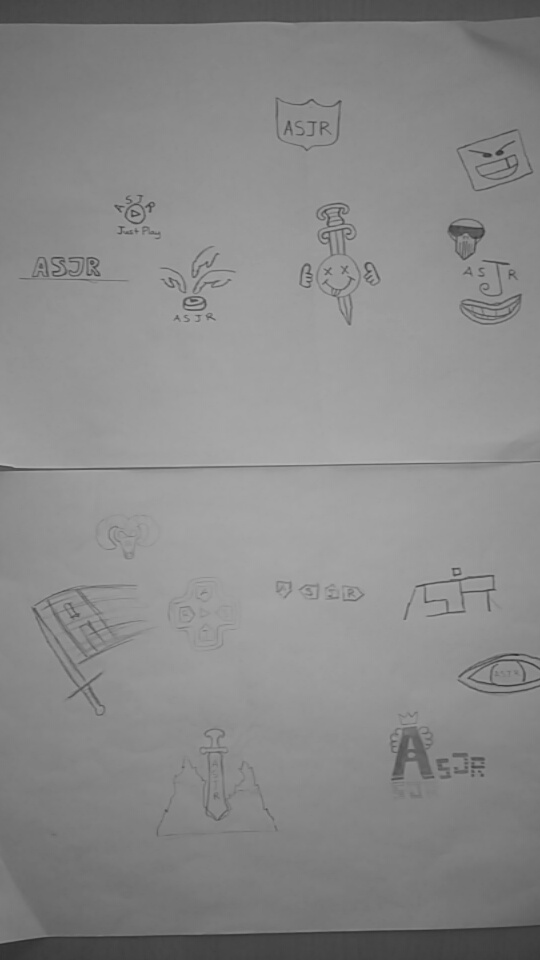 ASJR
ASJR
Just Play
ASJR
ASJR
ASJR
ASJR
ASJR
ASJR
AsJR
SJR